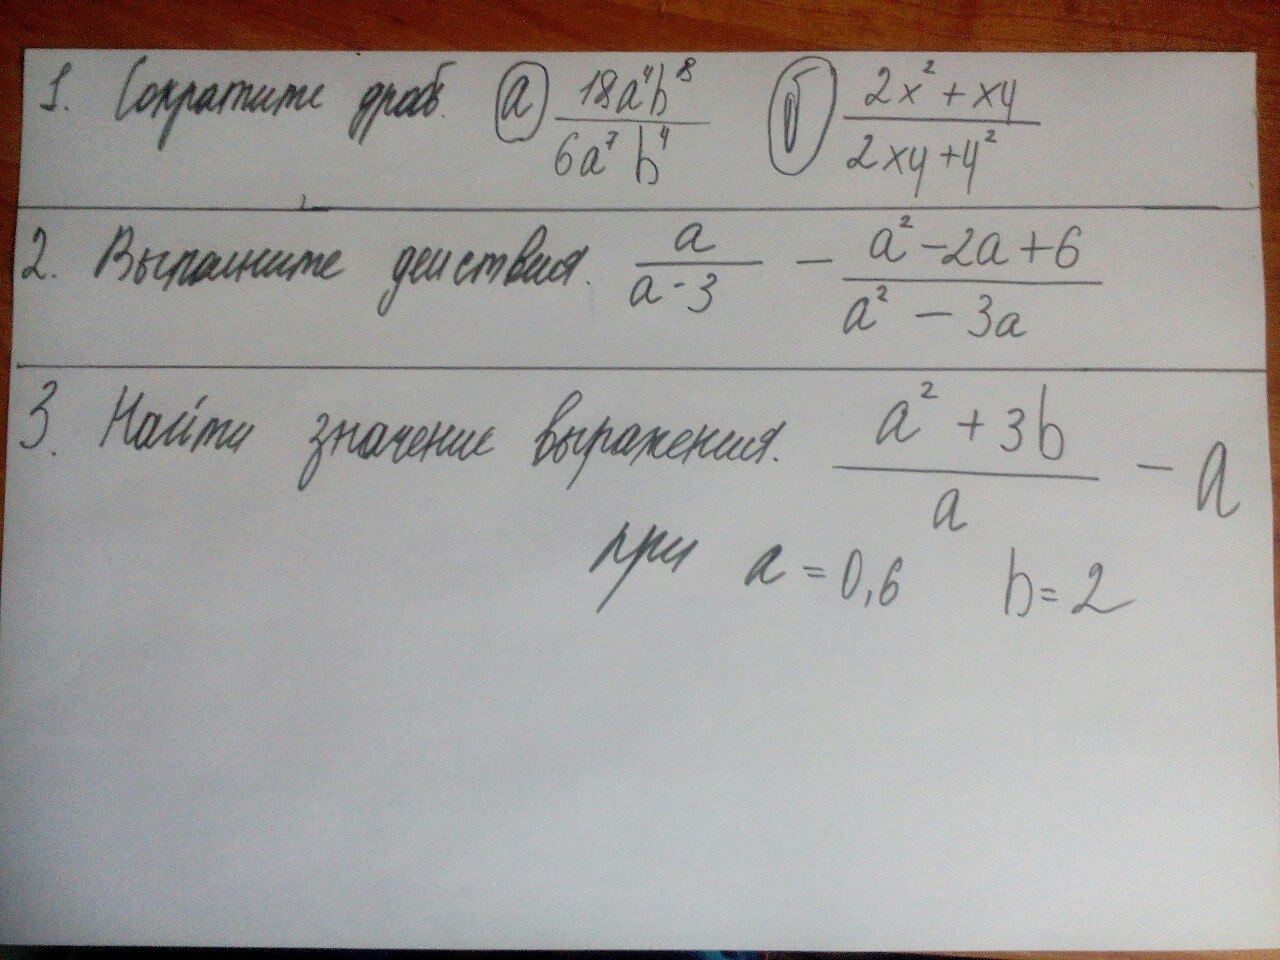 1. Сократите дробь. а) 18a⁴b⁸ / 6a⁷b⁴ б) 2x² + xy / 2xy + y²
2. Выполните действия. a / a - 3 − a² - 2a + 6 / a² − 3a
3. Найти значение выражения. a² + 3b / a − a
при a = 0,6 b = 2